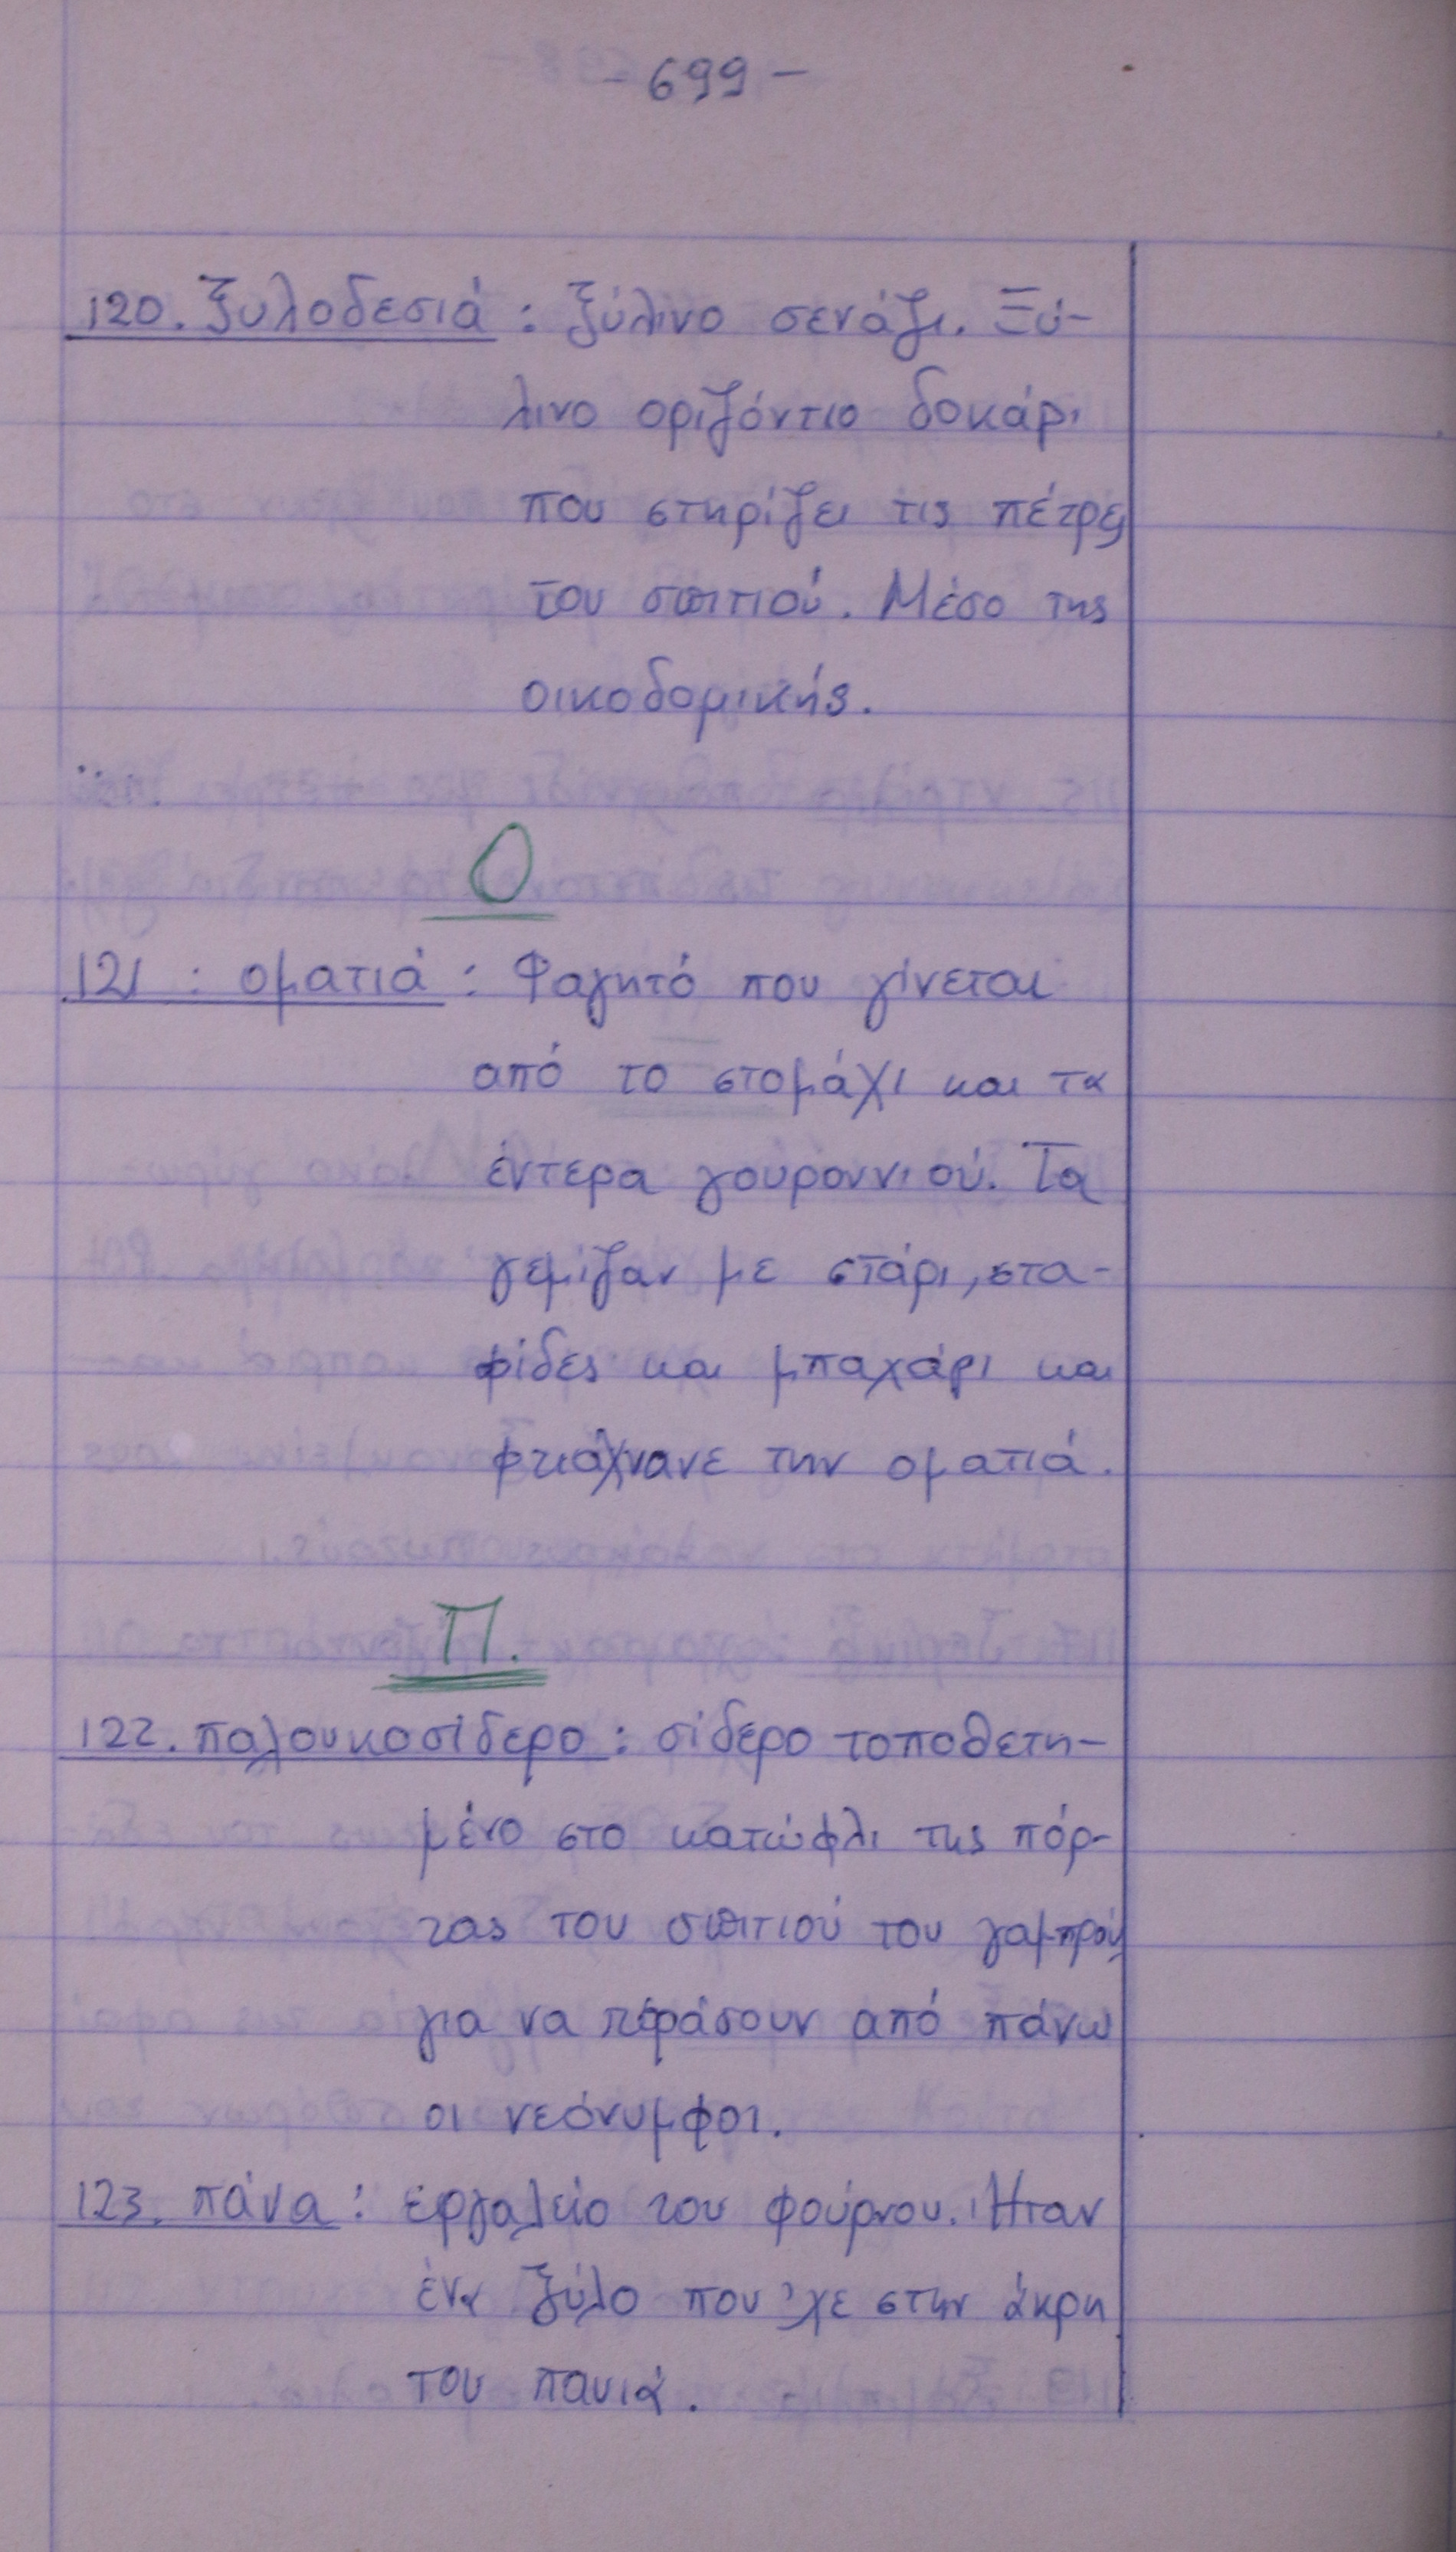 - 699 -
120. ξυλοδεσιά : ξύλινο σενάζι. Ξύ-
λινο οριζόντιο δοκάρι
που στηρίζει τις πέτρες
του σπιτιού. Μέσο της
οικοδομικής.
Ο
121 : οματιά : Φαγητό που γίνεται
από το στομάχι και τα
έντερα γουρουνιού. Τα
γεμίζαν με στάρι, στα-
φίδες και μπαχάρι και
φτιάχνανε την οματιά.
Π.
122. παλουκοσίδερο : σίδερο τοποθετη-
μένο στο κατώφλι της πόρ-
τας του σπιτιού του γαμπρού
για να περάσουν από πάνω
οι νεόνυμφοι.
123. πάνα : εργαλείο του φούρνου. Ήταν
ένα ξύλο που 'χε στην άκρη
του πανιά.